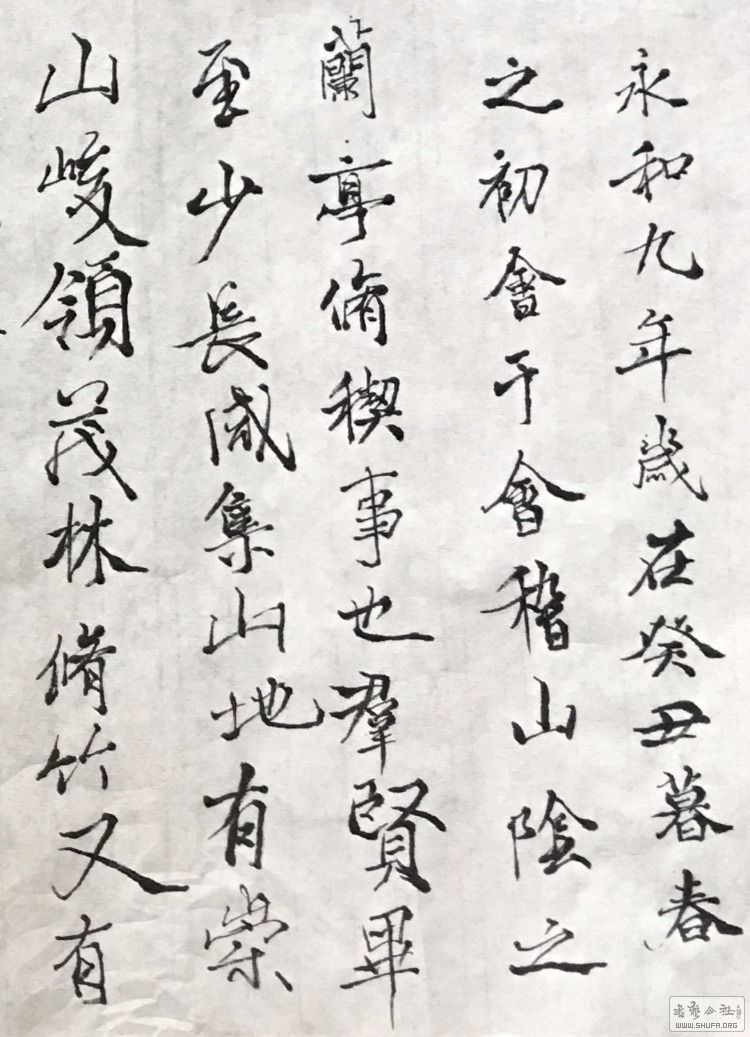 永和九年歲在癸丑暮春
之初會于會稽山陰之
蘭亭脩稧事也羣賢畢
至少長咸集此地有崇
山峻領茂林脩竹又有
書藝公社
WWW.SHUFA.ORG